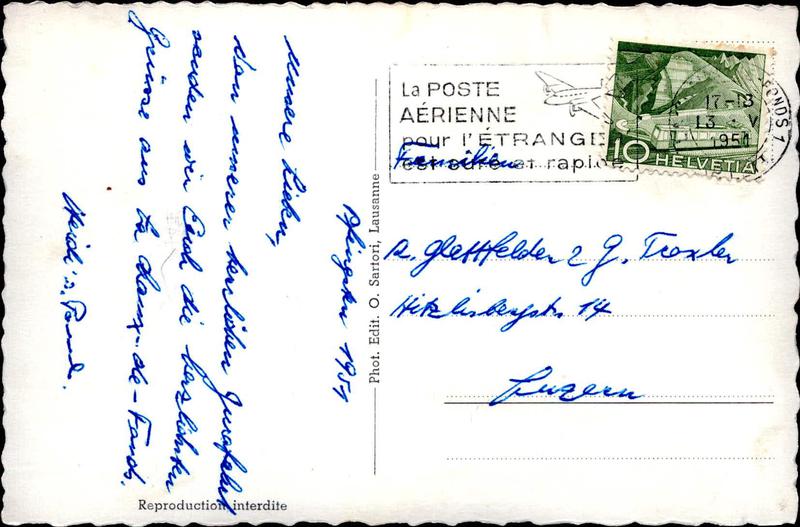 Pfingsten 1951
Unsere Lieben,
Von unserer herrlichen Jurafahrt
senden wir Euch die herzlichsten
Grüsse aus La Chaux-de-Fonds.
Heidi u.
Phot. Edit. O. Sartori, Lausanne
Reproduction interdite
La POSTE
AÉRIENNE
pour l'ÉTRANGE
est sûre et rapide
17-18
13 V
1951
10 HELVETIA
Familien
A. Glattfelder & G. Troxler
Hitzlisbergstr. 14
Luzern